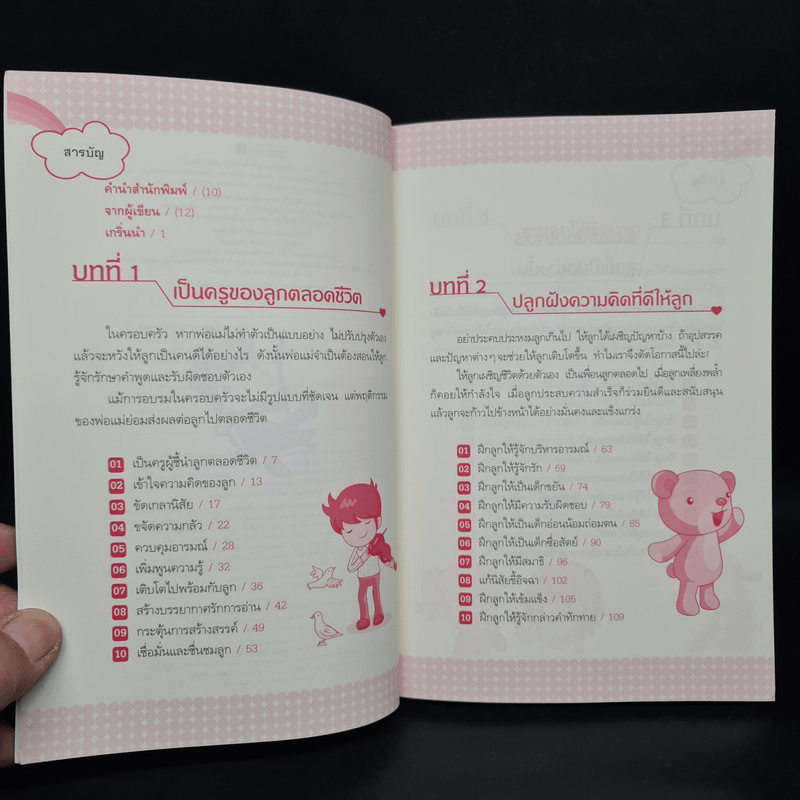 สารบัญ
คำนำสำนักพิมพ์ / (10)
จากผู้เขียน / (12)
เกริ่นนำ / 1
บทที่ 1
เป็นครูของลูกตลอดชีวิต
ในครอบครัว หากพ่อแม่ไม่ทำตัวเป็นแบบอย่าง ไม่ปรับปรุงตัวเอง
แล้วจะหวังให้ลูกเป็นคนดีได้อย่างไร ดังนั้นพ่อแม่จำเป็นต้องสอนให้ลูก
รู้จักรักษาคำพูดและรับผิดชอบตัวเอง
แม้การอบรมในครอบครัวจะไม่มีรูปแบบที่ชัดเจน แต่พฤติกรรม
ของพ่อแม่ย่อมส่งผลต่อลูกไปตลอดชีวิต
01 เป็นครูผู้ชี้นำลูกตลอดชีวิต / 7
02 เข้าใจความคิดของลูก / 13
03 ขัดเกลานิสัย / 17
04 ขจัดความกลัว / 22
05 ควบคุมอารมณ์ / 28
06 เพิ่มพูนความรู้ / 32
07 เติบโตไปพร้อมกับลูก / 36
08 สร้างบรรยากาศรักการอ่าน / 42
09 กระตุ้นการสร้างสรรค์ / 49
10 เชื่อมั่นและชื่นชมลูก / 53
บทที่ 2
ปลูกฝังความคิดที่ดีให้ลูก
อย่าประคบประหงมลูกเกินไป ให้ลูกได้เผชิญปัญหาบ้าง ถ้าอุปสรรค
และปัญหาต่างๆ จะช่วยให้ลูกเติบโตขึ้น ทำไมเราจึงตัดโอกาสนี้ไปล่ะ!
ให้ลูกเผชิญชีวิตด้วยตัวเอง เป็นเพื่อนลูกตลอดไป เมื่อลูกเพลี่ยงพล้ำ
ก็คอยให้กำลังใจ เมื่อลูกประสบความสำเร็จก็ร่วมยินดีและสนับสนุน
แล้วลูกจะก้าวไปข้างหน้าได้อย่างมั่นคงและแข็งแกร่ง
01 ฝึกลูกให้รู้จักบริหารอารมณ์ / 63
02 ฝึกลูกให้รู้จักรัก / 69
03 ฝึกลูกให้เป็นเด็กขยัน / 74
04 ฝึกลูกให้มีความรับผิดชอบ / 79
05 ฝึกลูกให้เป็นเด็กอ่อนน้อมถ่อมตน / 85
06 ฝึกลูกให้เป็นเด็กซื่อสัตย์ / 90
07 ฝึกลูกให้มีสมาธิ / 96
08 แก้นิสัยขี้อิจฉา / 102
09 ฝึกลูกให้เข้มแข็ง / 105
10 ฝึกลูกให้รู้จักกล่าวคำทักทาย / 109